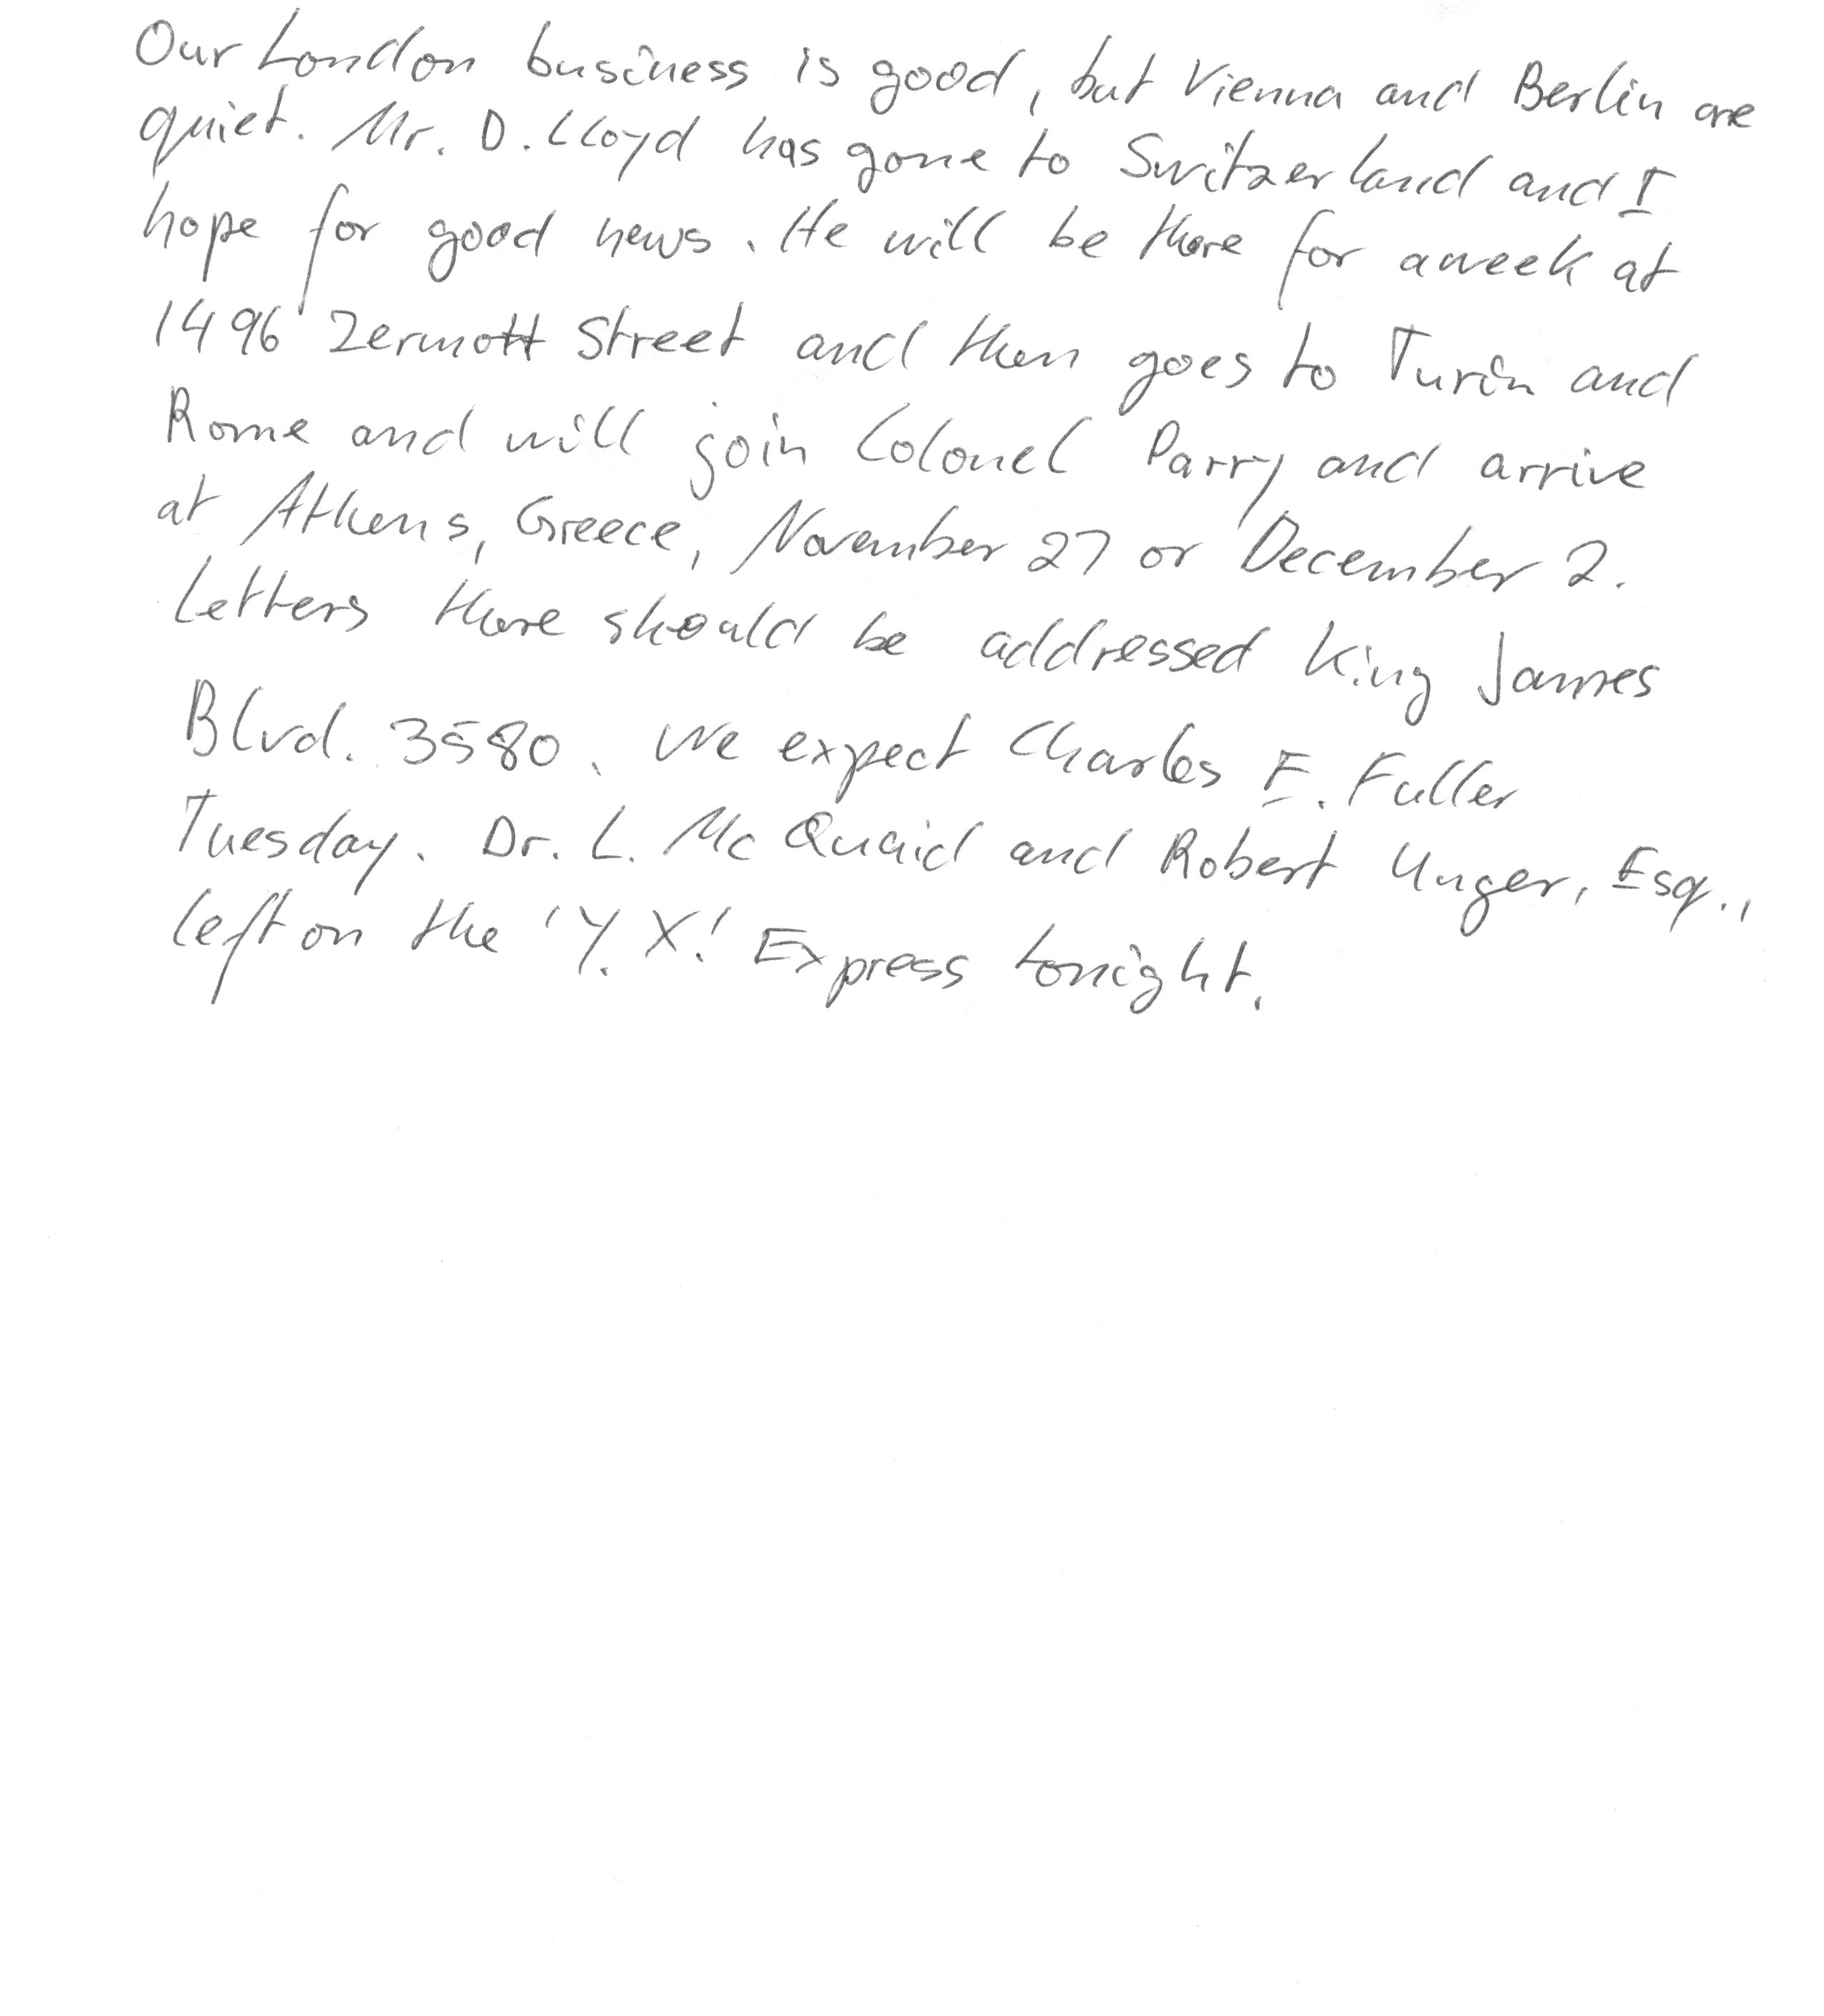 Our London business is good, but Vienna and Berlin are
quiet. Mr. D. Lloyd has gone to Switzerland and I
hope for good news. He will be there for a week at
1496 Zermott Street and then goes to Turin and
Rome and will join Colonel Parry and arrive
at Athens, Greece, November 27 or December 2.
Letters there should be addressed King James
Blvd. 3580. We expect Charles E. Fuller
Tuesday. Dr. L. Mc Quaid and Robert Unger, Esq.,
left on the 'Y. X.' Express tonight.